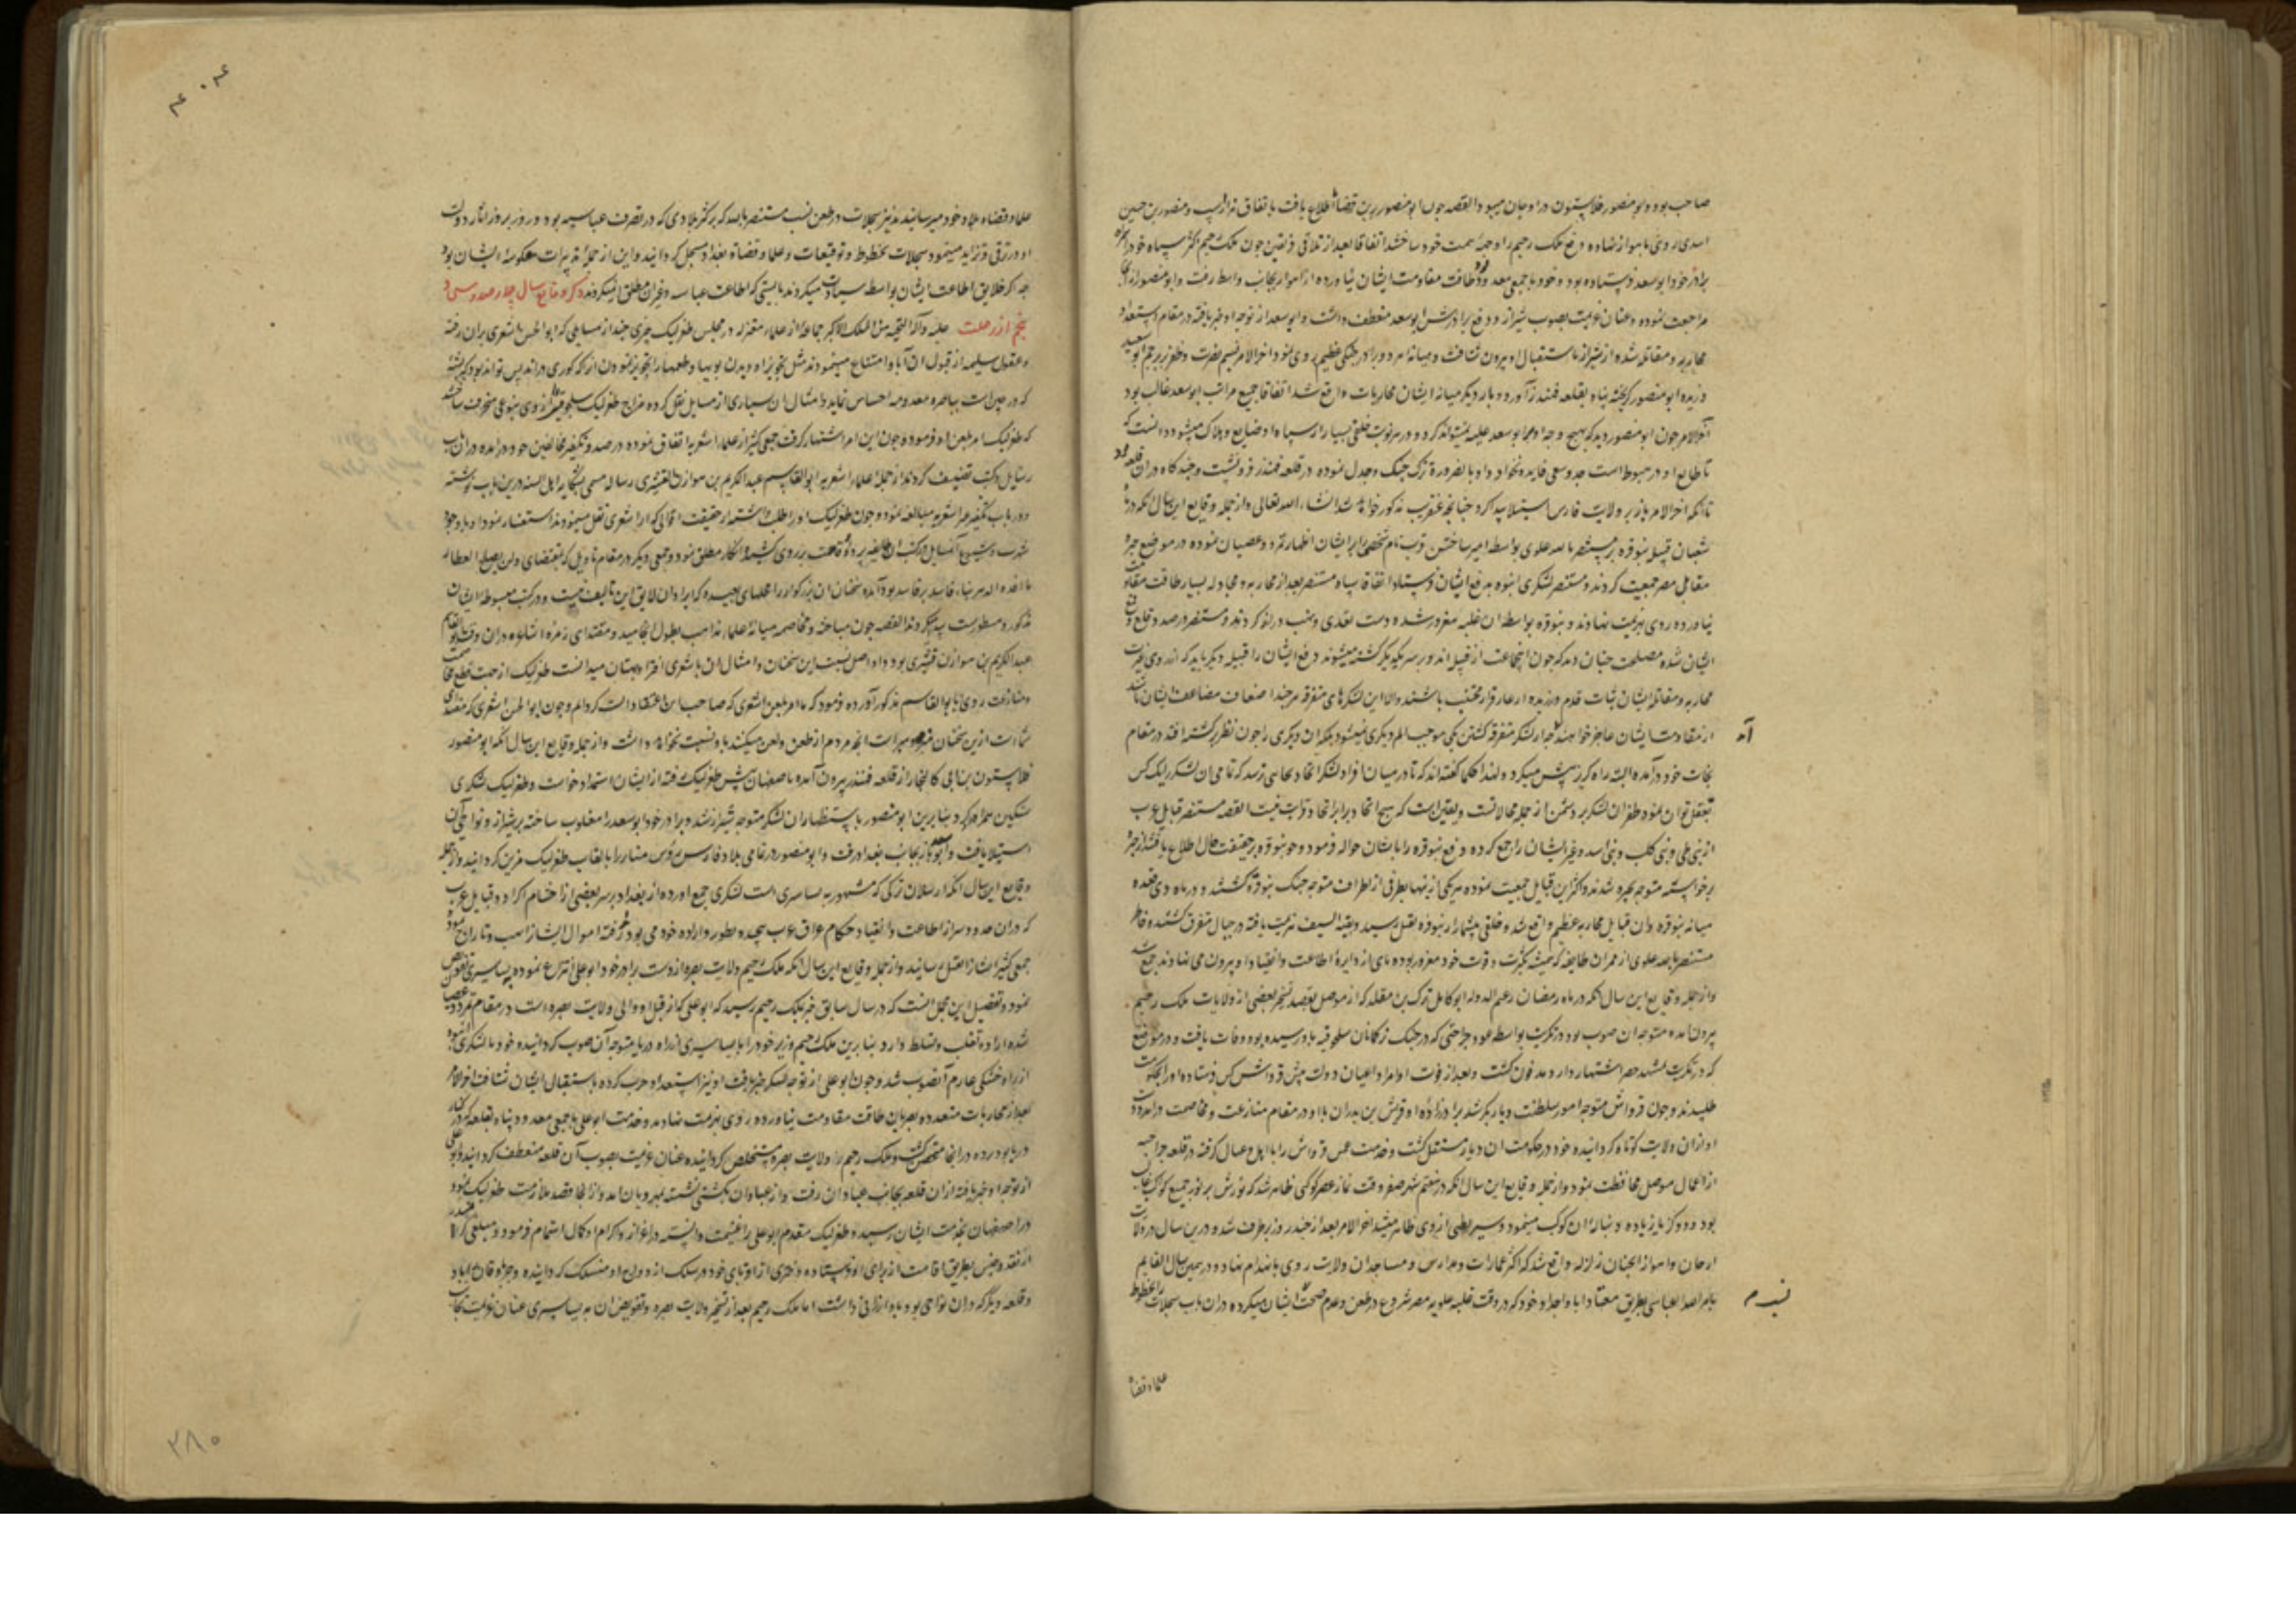 صاحب بود و ابو منصور فلاستون در اوجان میبود القصه چون ابو منصور برین قضایا اطلاع یافت باتفاق و منصور بن حسین
اسدی روی باهواز نهاده دفع ملک رحیم را وجهه همت خود ساختند اتفاقا بعد از تلاقی فریقین چون ملک رحیم اکثر سپاه خود را
برادر خود ابو سعد فرستاده بود و خود با جمعی معدود طاقت مقاومت ایشان نیاورده از اهواز بجانب واسط رفت و ابو منصور از
مراجعت نموده و عنان عزیمت بصوب شیراز و دفع برادرش ابو سعد منعطف داشت و ابو سعد از توجه او خبر یافته در مقام استعداد
محاربه و مقاتله شده از شیراز باستقبال او بیرون شتافت و میانه هر دو برادر جنگی عظیم روی نمود اخر الامر نسیم نصرت و ظفر بر پرچم ابو سعید
وزیده ابو منصور گریخته پناه بقلعه فهندز آورد و بار دیگر میانه ایشان محاربات واقع شد اتفاقا جمیع مراتب ابو سعد غالب بود
آخر الامر چون ابو منصور دید که بهیچ وجه او بر ابو سعد غلبه نمیتواند کرد و در هر نوبت خلقی بسیار از سپاه او ضایع و هلاک میشود دانست که
تا طالع او در هبوط است جد و سعی فایده نخواهد داد بالضروره ترک جنگ و جدل نموده در قلعه فهندز فرو نشست و چندگاه دران قلعه بود
تا آنکه اخر الامر باز بر ولایت فارس استیلا پیدا کرد چنانچه عنقریب مذکور خواهد شد انشاء الله تعالی و از جمله وقایع این سال آنکه در ماه
شعبان قبیله بنو قره بر مستنصر بالله علوی بواسطه امیر ساختن نام شخصی را بر ایشان اظهار تمرد و عصیان نموده در موضع جیزه
مقابل مصر جمعیت کردند و مستنصر لشکری انبوه بدفع ایشان فرستاد اتفاقا سپاه مستنصر بعد از محاربه و مجادله بسیار طاقت مقاومت
نیاورده روی بهزیمت نهادند و بنو قره بواسطه ان غلبه مغرور شده دست تعدی و نهب دراز کردند و مستنصر در صدد قلع و قمع
ایشان شده مصلحت چنان دید که چون اینجماعت از قبیله اند و بر سر یکدیگر کشته میشوند دفع ایشان را قبیله دیگر باید که از روی غیرت
محاربه و مقاتله ایشان ثبات قدم ورزیده از عار فرار مجتنب باشند والا این لشکرهای متفرقه هر چند اضعاف مضاعف ایشان باشند
از مقاومت ایشان عاجز خواهند آمد چرا که در لشکر متفرقه کشتن یکی موجب الم دیگری نمیشود بلکه ان دیگری را چون نظر بر کشته افتد در مقام
نجات خود درآمده البته راه گریز پیش میگیرد و لهذا حکما گفته اند که تا در میان افراد لشکر اتحاد بجایی نرسد که تمامی ان لشکر را یک کس
تعقل توان نمود ظفر ان لشکر بر دشمن از جمله محالاتست و یقین است که هیچ اتحاد برابر اتحاد قرابت نیست القصه مستنصر قبایل عرب
از بنی طی و بنی کلب و بنی اسد و غیر ایشان را جمع کرده و دفع بنو قره را بایشان حواله فرمود و چون بنو قره بر حقیقت حال اطلاع یافتند از جیزه
برخواسته متوجه بحیره شدند و اکثر این قبایل جمعیت نموده هر یکی از اینها بطرفی از اطراف متوجه جنگ بنو قره گشتند و در ماه ذی قعده
میانه بنو قره و ان قبایل محاربه عظیم واقع شد و خلقی بیشمار از بنو قره بقتل رسید و بقیه السیف هزیمت یافته در جبال متفرق گشتند و خاطر
مستنصر بالله علوی از ممر ان طایفه که همیشه بکثرت و قوت خود مغرور بوده پای از دایره اطاعت و انقیاد او بیرون می نهادند جمع شد
و از جمله وقایع این سال آنکه در ماه رمضان زعیم الدوله ابو کامل برکه بن مقلد که از موصل بقصد تسخیر بعضی از ولایات ملک رحیم
بیرون امده متوجه ان صوب بود در تکریت بواسطه عود جراحتی که در جنگ ترکمانان سلجوقیه باو رسیده بود وفات یافت و در موضع
که در تکریت بمشهد خضر اشتهار دارد مدفون گشت و بعد از فوت او امرا و اعیان دولت پیش قرواش کس فرستاده او را بحکومت
طلبیدند و چون قرواش متوجه امور سلطنت دیار بکر شد برادرزاده او قریش بن بدران با او در مقام منازعت و مخاصمت درآمده دست
او از ان ولایت کوتاه گردانیده خود در حکومت ان دیار مستقل گشت و خدمت عمش قرواش را با اهل و عیال گرفته در قلعه جراحیه
از اعمال موصل محافظت نمود و از جمله وقایع این سال آنکه در هفتم شهر صفر وقت نماز عصر کوکبی ظاهر شد که نورش بر نور جمیع کواکب غالب
بود و دو گز یا زیاده دنباله ان کوکب مینمود و سیر بطی از وی ظاهر میشد اخر الامر بعد از چند روز برطرف شد و درین سال در ولایت
ارجان و اهواز انچنان زلزله واقع شد که اکثر عمارات و مدارس و مساجد ان ولایت روی بانهدام نهاد و در همین سال القایم
بامر الله العباسی بطریق معتاد ابا و اجداد خود که در وقت غلبه علویه مصر شروع در طعن و عدم صحت نسب ایشان میکردند دران باب سجلات بخطوط
علما و قضاه
علما و قضاه بلاد خود میرسانیدند نیز سجلات در طعن نسب مستنصر بالله که بر اکثر بلادی که در تصرف عباسیه بود و روز بروز اثار دولت
او در ترقی و تزاید مینمود سجلات بخطوط و توقیعات و علما و قضاه بغداد مسجل گردانید و این از جمله تدبیرات معکوسه ایشان بود
چه اگر خلایق اطاعت ایشان بواسطه سیادت میکردند بایستی که اطاعت عباسیه و غیر ان مطلق نمیکردند ذکر وقایع سال چهار صد و سی و
پنجم از رحلت علیه و آله التحیه من الملک الاکبر جماعه از علماء معتزله در مجلس طغرلبک چیزی چند از مسایلی که ابو الحسن اشعری بران رفته
و عقول سلیمه از قبول ان آبا و امتناع مینمودند مثل تجویز او دیدن بویها و طعمها را و تجویز نمودن آنکه کوری در اندلس تواند بود که پشه
که در چین است بباصره معدومه احساس نماید و امثال ان بسیاری از مسایل نقل کرده مزاج طغرلبک سلجوقی را از وی بنوعی منحرف ساختند
که طغرلبک امر بلعن او فرمود و چون این امر اشتهار گرفت جمعی کثیر از علماء اشعریه اتفاق نموده در صدد تکفیر مخالفین خود درامده دران باب
رسایل و کتب تصنیف کردند از جمله علماء اشعریه ابو القاسم عبد الکریم بن هوازن القشیری رساله مسمی بشکایه اهل السنه درین باب نوشته
و در باب تکفیر اشعریه مبالغه نمود و چون طغرلبک او را طلب داشته از حقیقت اقوالی که از اشعری نقل مینمودند استفسار نمود او با وجود
مااقده الدهر بناء فاسد بر فاسد بود آمده سخنان ان بزرگوار را محلهای بعیده که ایراد ان لایق این تالیف نیست و در کتب مبسوطه ایشان
مذکور و مسطور است پیدا میکردند القصه چون مباحثه و مخاصمه میانه علماء مذاهب بطول انجامید و مقتدای زمره اشاعره دران وقت ابو القاسم
عبد الکریم بن هوازن قشیری بود و او اصل نسبت این سخنان و امثال ان باشعری افترا و بهتان میدانست طغرلبک از جهت قطع مخاصمت
و منازعت روی بابو القاسم مذکور آورده فرمود که ما امر بلعن اشعری که صاحب این اعتقادات است کرده ایم و چون ابو الحسن اشعری که مقتدای
شماست ازین سخنان منزه و مبراست انچه مردم از طعن و لعن میکنند باو نسبت نخواهد داشت و از جمله وقایع این سال آنکه ابو منصور
فلاستون بن ابی کالنجار از قلعه فهندز بیرون آمده باصفهان پیش طغرلبک رفته از ایشان استمداد خواست و طغرلبک لشکری
سنگین همراه کرد بنابرین ابو منصور باستظهار ان لشکر متوجه شیراز شد و برادر خود ابو سعد را مغلوب ساخته بر شیراز و نواحی آن
استیلا یافت و ابو سعد باز بجانب بغداد رفت و ابو منصور در تمامی بلاد فارس رؤس منابر را بالقاب طغرلبک مزین گردانید و از جمله
وقایع این سال آنکه ارسلان ترکی که مشهور به بساسیری است لشکری جمع اورده از بغداد بر سر بعضی از احشام اکراد و قبایل عرب
که دران حدود سر از اطاعت و انقیاد حکام عراق عرب پیچیده بطور و اراده خود می بودند رفته اموال ایشانرا نهب و تاراج نمود
جمعی کثیر ایشانرا بقتل رسانید و از جمله وقایع این سال آنکه ملک رحیم ولایت بصره از دست برادر خود ابو علی انتزاع نموده ببساسیری تفویض
نمود و تفصیل این مجمل انست که در سال سابق خبر بملک رحیم رسید که ابو علی که از قبل او والی ولایت بصره است در مقام تمرد و عصیان
شده اراده تغلب و تسلط دارد بنابرین ملک رحیم وزیر خود را با بساسیری از راه دریا متوجه آن صوب گردانیده خود با لشکری انبوه
از راه خشکی عازم آنصوب شد و چون ابو علی از توجه لشکر خبر یافت او نیز استعداد حرب کرده باستقبال ایشان شتافت اخر الامر
بعد از محاربات متعدده بصریان طاقت مقاومت نیاورده روی بهزیمت نهادند و خدمت ابو علی با جمعی معدود پناه بقلعه که در کنار
دریا بود برده در انجا متحصن گشت و ملک رحیم را ولایت بصره مستخلص گردانیده عنان عزیمت بصوب آن قلعه منعطف گردانید و ابو علی
از توجه او خبر یافته از ان قلعه بجانب عبادان رفت و از عبادان بکشتی نشسته بمهرویان امد و از انجا قصد ملازمت طغرلبک نمود
در اصفهان بخدمت ایشان رسید و طغرلبک مقدم ابو علی را غنیمت دانسته در اعزاز و اکرام او کمال اهتمام فرمود و مبلغی گرانمند
از نقد و جنس بطریق اقامت از برای او فرستاده دختری از اقربای خود در سلک ازدواج او منسلک گردانیده و
و قلعه دیگر که دران نواحی بود باو ارزانی داشت اما ملک رحیم بعد از تسخیر ولایت بصره و تفویض ان به بساسیری عنان عزیمت بجانب
۲۸۰